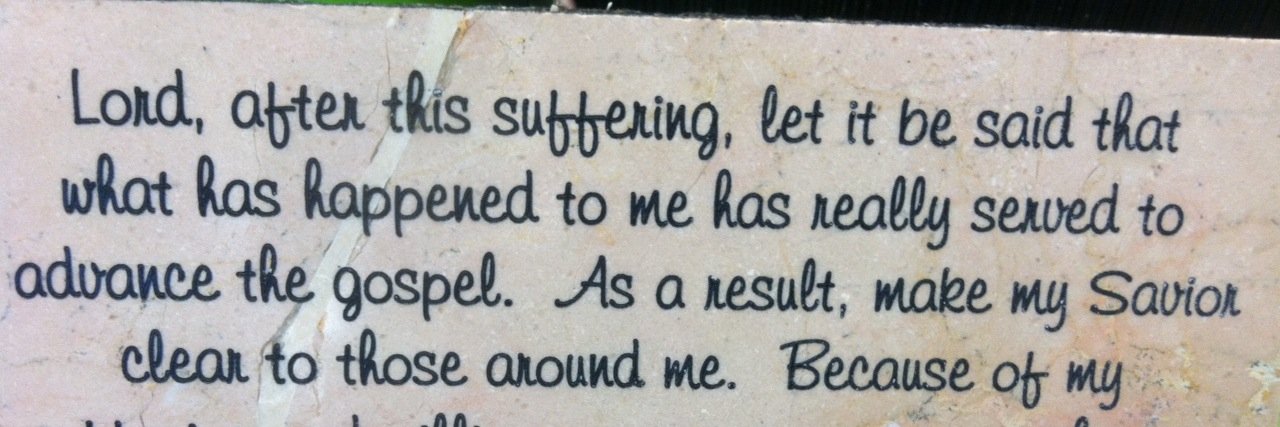 Lord, after this suffering, let it be said that
what has happened to me has really served to
advance the gospel. As a result, make my Savior
clear to those around me. Because of my